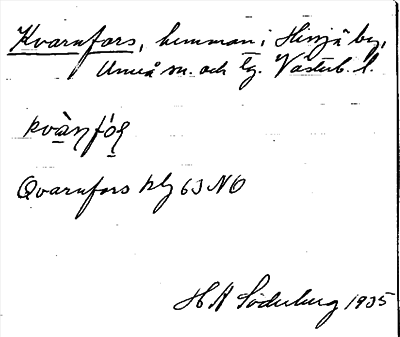 Kvarnfors, hemman i Hissjö by,
Umeå sn. och tg. Västerb. l.
kvà̱ɳfó̱ɽ
Qvarnfors kbl 63 NO
H A Söderberg 1935